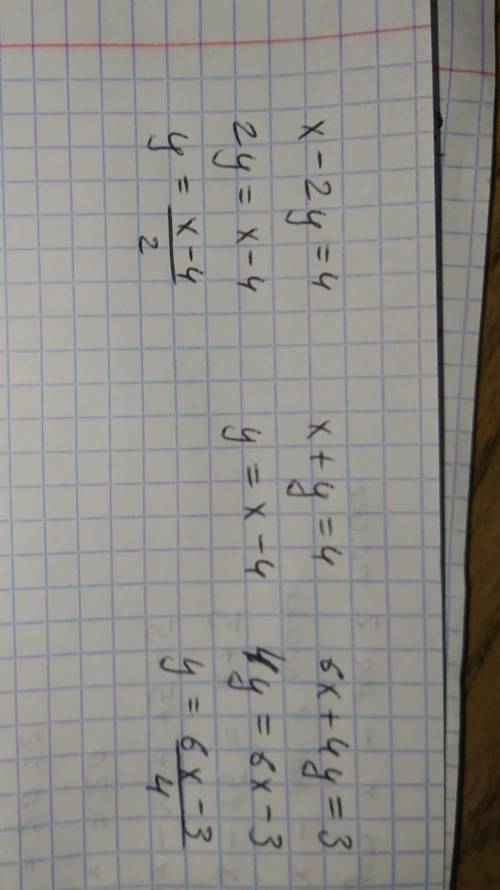 x - 2y = 4
2y = x - 4
y = x - 4 / 2
x + y = 4
y = x - 4
6x + 4y = 3
4y = 6x - 3
y = 6x - 3 / 4